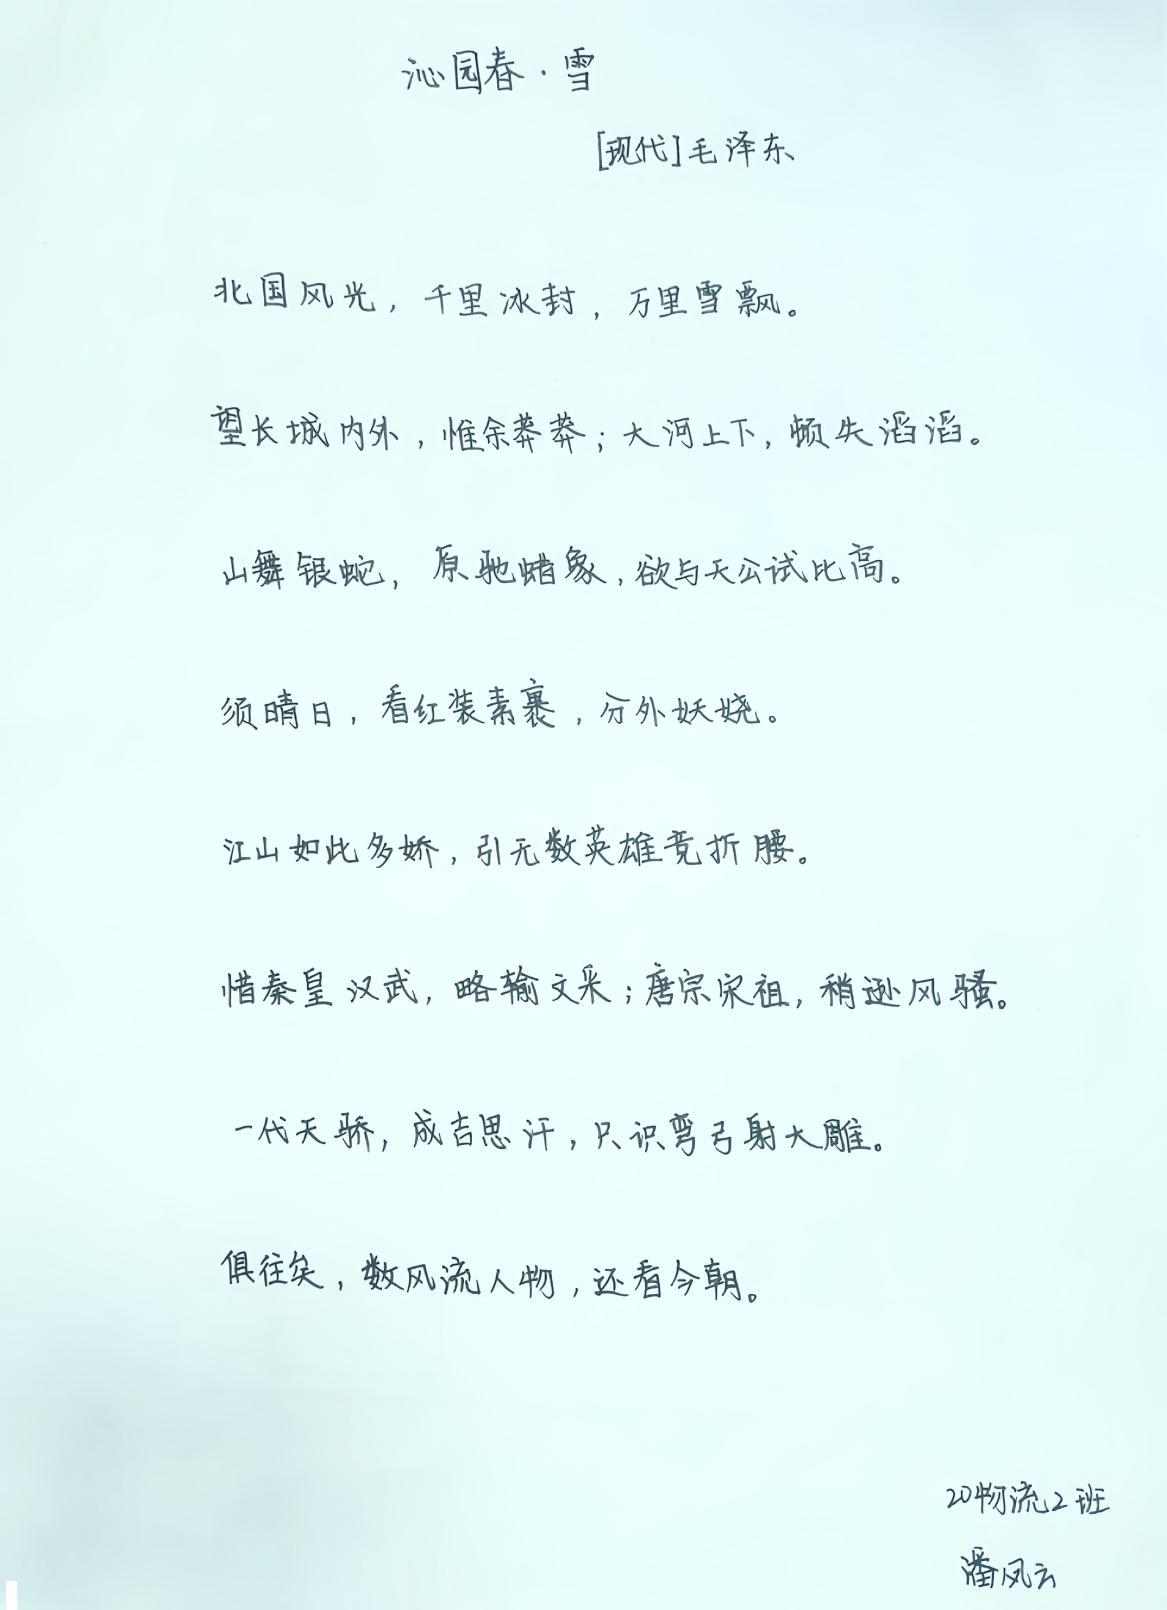 沁园春·雪
[现代]毛泽东
北国风光，千里冰封，万里雪飘。
望长城内外，惟余莽莽；大河上下，顿失滔滔。
山舞银蛇，原驰蜡象，欲与天公试比高。
须晴日，看红装素裹，分外妖娆。
江山如此多娇，引无数英雄竞折腰。
惜秦皇汉武，略输文采；唐宗宋祖，稍逊风骚。
一代天骄，成吉思汗，只识弯弓射大雕。
俱往矣，数风流人物，还看今朝。
20物流2班
潘凤云